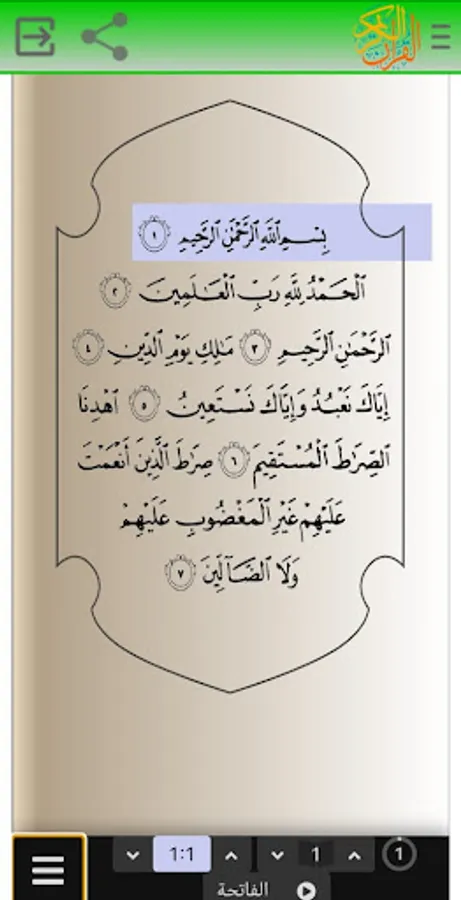 القرآن الكريم
بِسْمِ ٱللَّهِ ٱلرَّحْمَٰنِ ٱلرَّحِيمِ ١
ٱلْحَمْدُ لِلَّهِ رَبِّ ٱلْعَٰلَمِينَ ٢
ٱلرَّحْمَٰنِ ٱلرَّحِيمِ ٣ مَٰلِكِ يَوْمِ ٱلدِّينِ ٤
إِيَّاكَ نَعْبُدُ وَإِيَّاكَ نَسْتَعِينُ ٥ ٱهْدِنَا
ٱلصِّرَٰطَ ٱلْمُسْتَقِيمَ ٦ صِرَٰطَ ٱلَّذِينَ أَنْعَمْتَ
عَلَيْهِمْ غَيْرِ ٱلْمَغْضُوبِ عَلَيْهِمْ
وَلَا ٱلضَّآلِّينَ ٧
1:1 1 1
الفاتحة